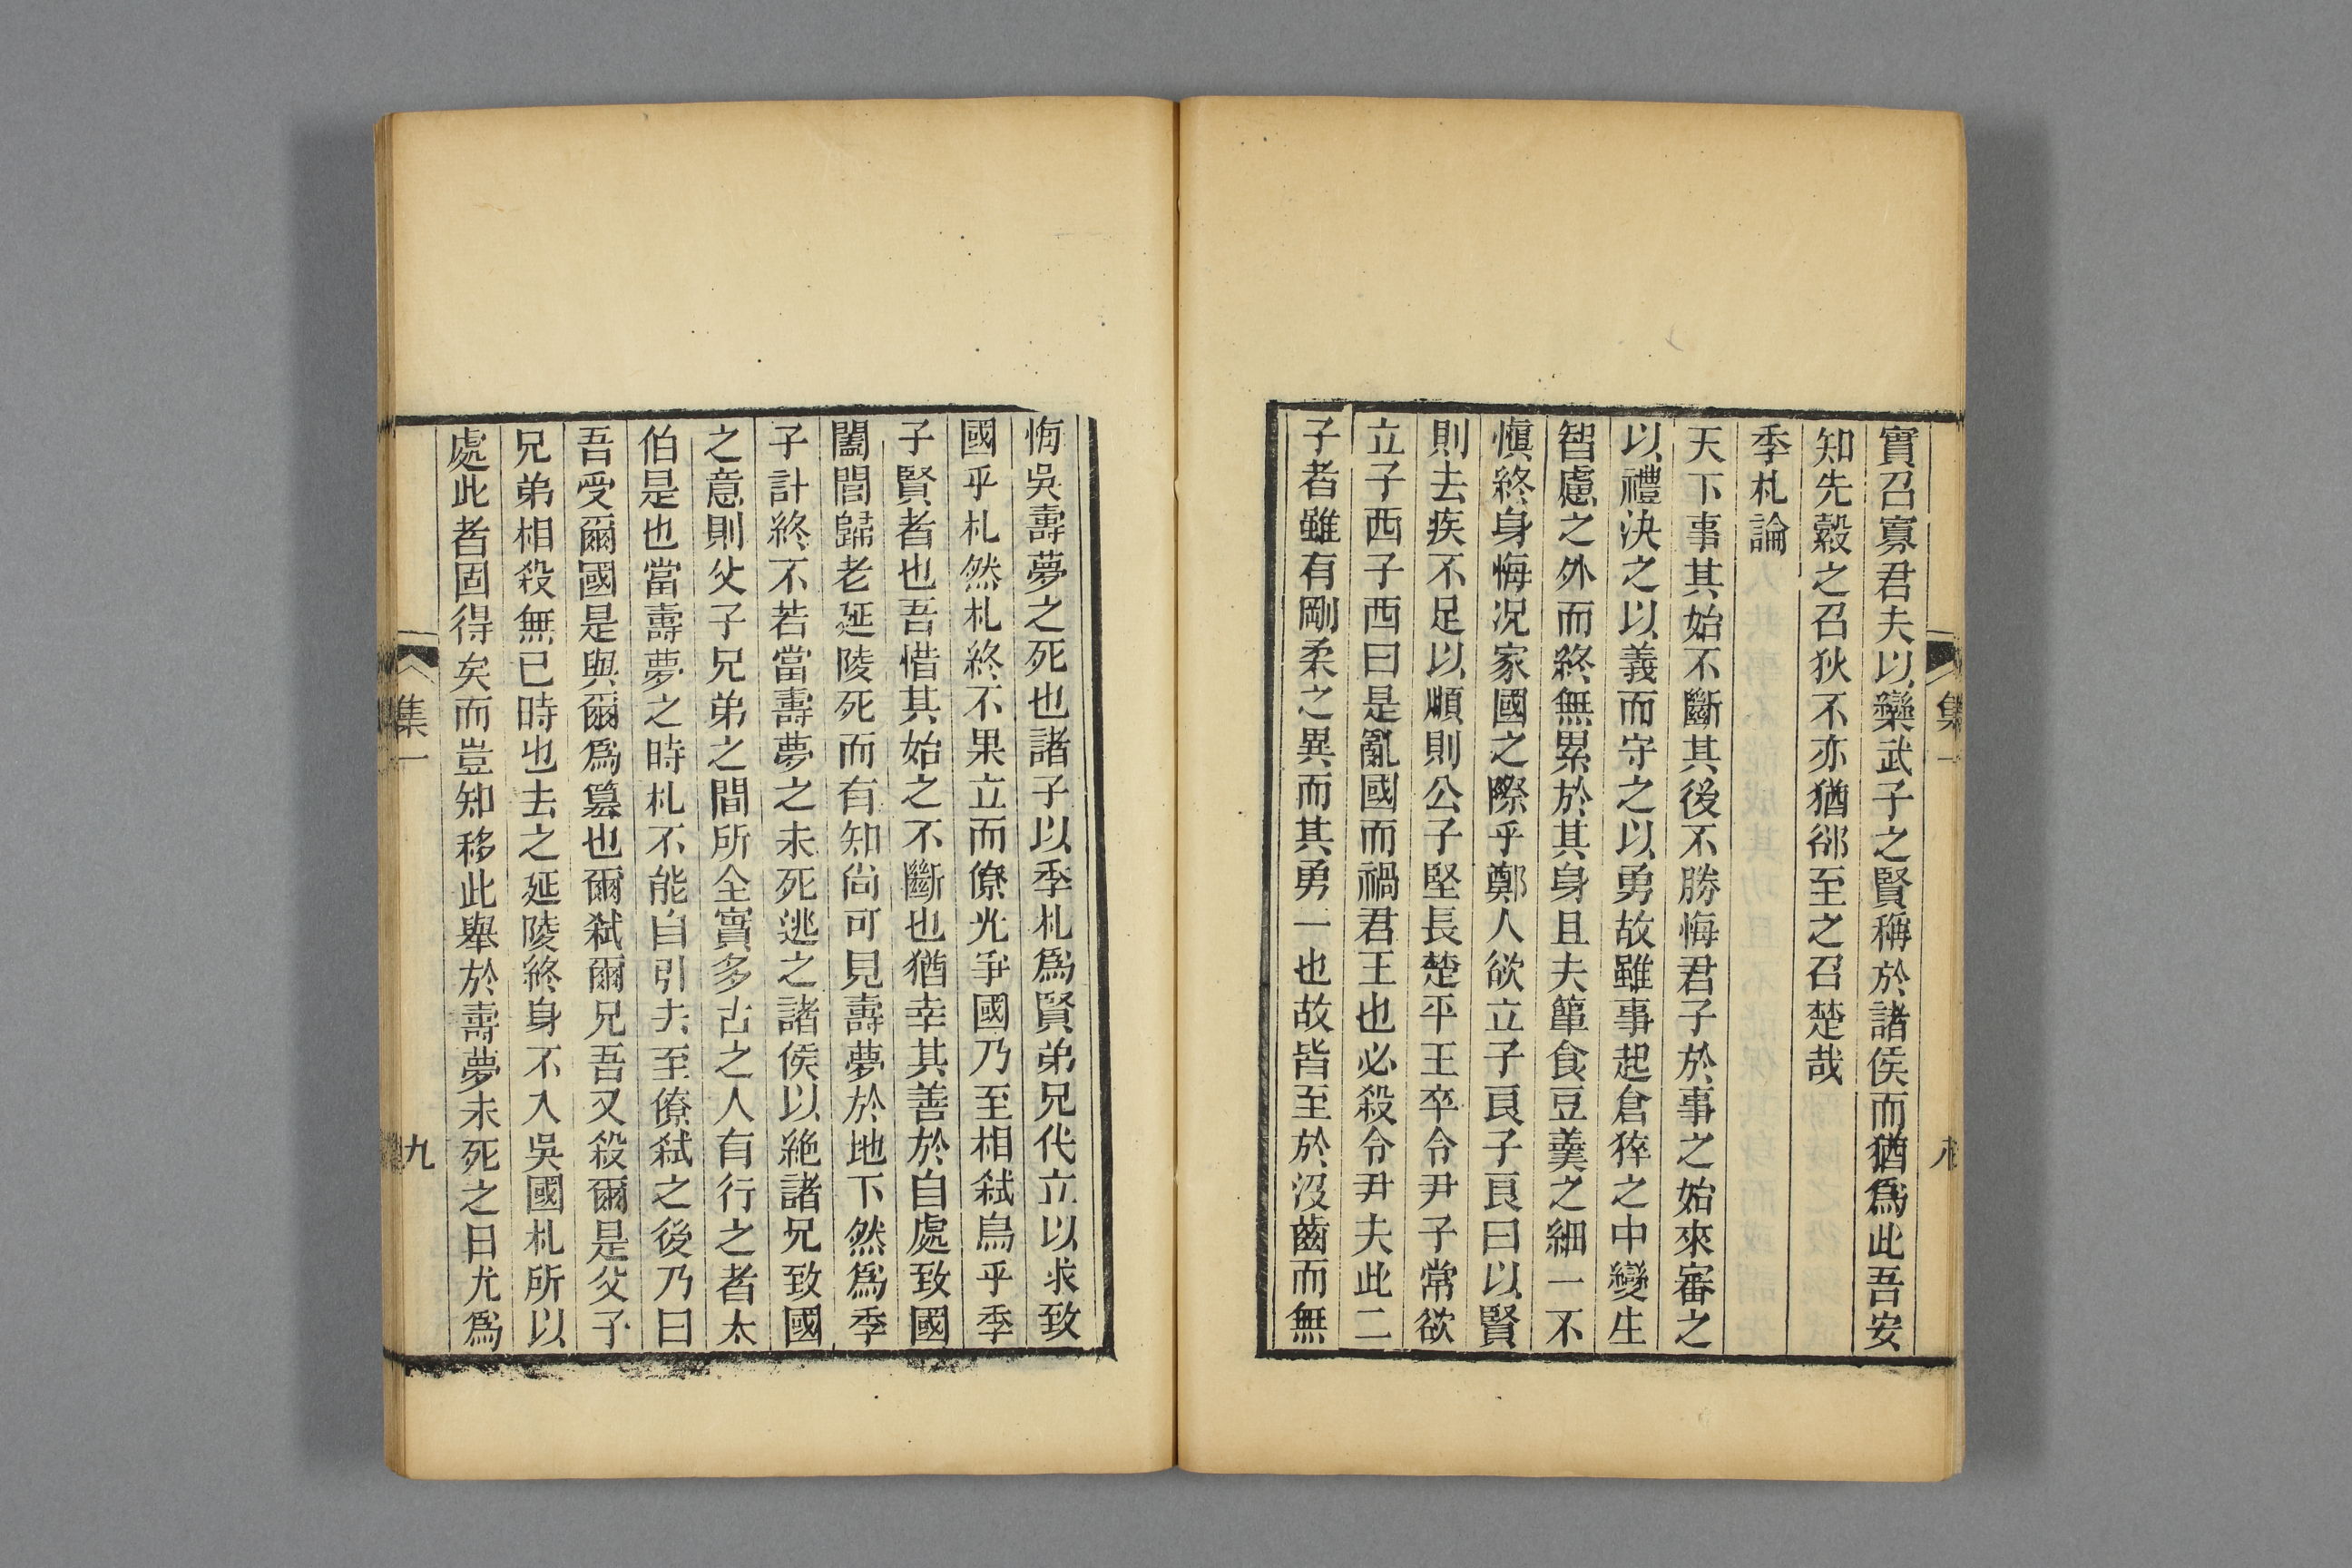 實召寡君夫以欒武子之賢稱於諸侯而猶爲此吾安
知先縠之召狄不亦猶郤至之召楚哉
季札論
天下事其始不斷其後不勝悔君子於事之始來審之
以禮決之以義而守之以勇故雖事起倉猝之中變生
智慮之外而終無累於其身且夫簞食豆羹之細一不
愼終身悔況家國之際乎鄭人欲立子良子良曰以賢
則去疾不足以順則公子堅長楚平王卒令尹子常欲
立子西子西曰是亂國而禍君王也必殺令尹夫此二
子者雖有剛柔之異而其勇一也故皆至於沒齒而無
悔吳壽夢之死也諸子以季札爲賢弟兄代立以求致
國乎札然札終不果立而僚光爭國乃至相弑烏乎季
子賢者也吾惜其始之不斷也猶幸其善於自處致國
闔閭歸老延陵死而有知尙可見壽夢於地下然爲季
子計終不若當壽夢之未死逃之諸侯以絶諸兄致國
之意則父子兄弟之間所全實多古之人有行之者太
伯是也當壽夢之時札不能自引去至僚弑之後乃曰
吾受爾國是與爾爲簒也爾弑爾兄吾又殺爾是父子
兄弟相殺無已時也去之延陵終身不入吳國札所以
處此者固得矣而豈知移此舉於壽夢未死之日尤爲
集一
九